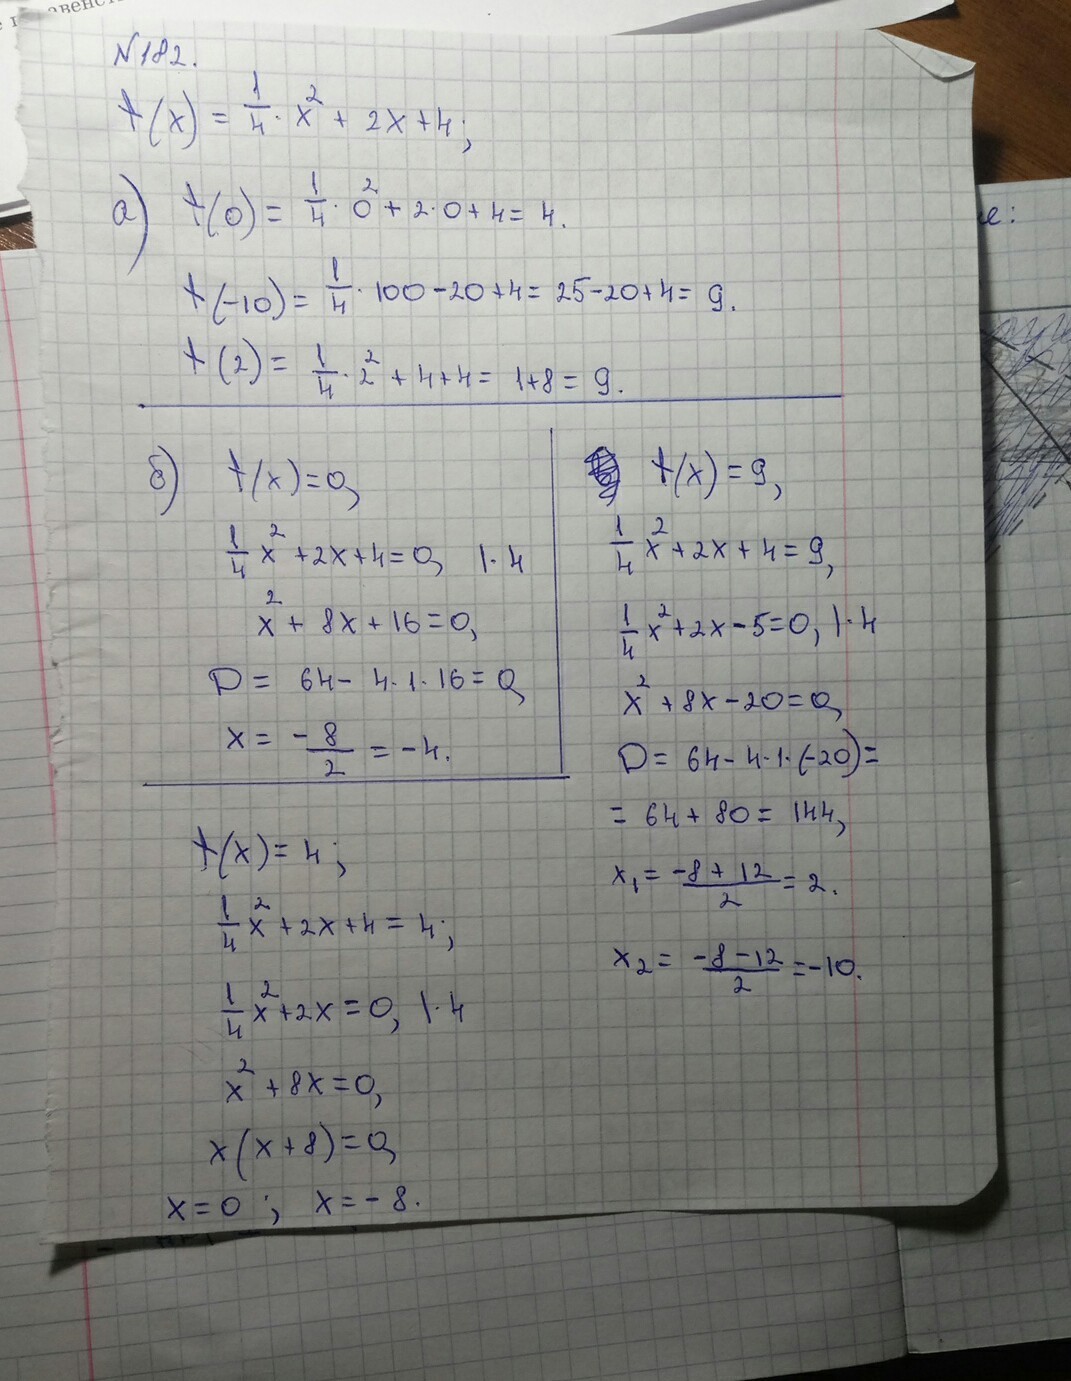 N182.
f(x) = 1/4 · x² + 2x + 4;
а) f(0) = 1/4 · 0² + 2·0 + 4 = 4.
f(-10) = 1/4 · 100 - 20 + 4 = 25 - 20 + 4 = 9.
f(2) = 1/4 · 2² + 4 + 4 = 1 + 8 = 9.
б) f(x) = 0,
1/4 x² + 2x + 4 = 0, |·4
x² + 8x + 16 = 0,
D = 64 - 4·1·16 = 0,
x = -8/2 = -4.
f(x) = 9,
1/4 x² + 2x + 4 = 9,
1/4 x² + 2x - 5 = 0, |·4
x² + 8x - 20 = 0,
D = 64 - 4·1·(-20) =
= 64 + 80 = 144,
x₁ = (-8 + 12)/2 = 2.
x₂ = (-8 - 12)/2 = -10.
f(x) = 4;
1/4 x² + 2x + 4 = 4;
1/4 x² + 2x = 0, |·4
x² + 8x = 0,
x(x + 8) = 0,
x = 0 ; x = -8.